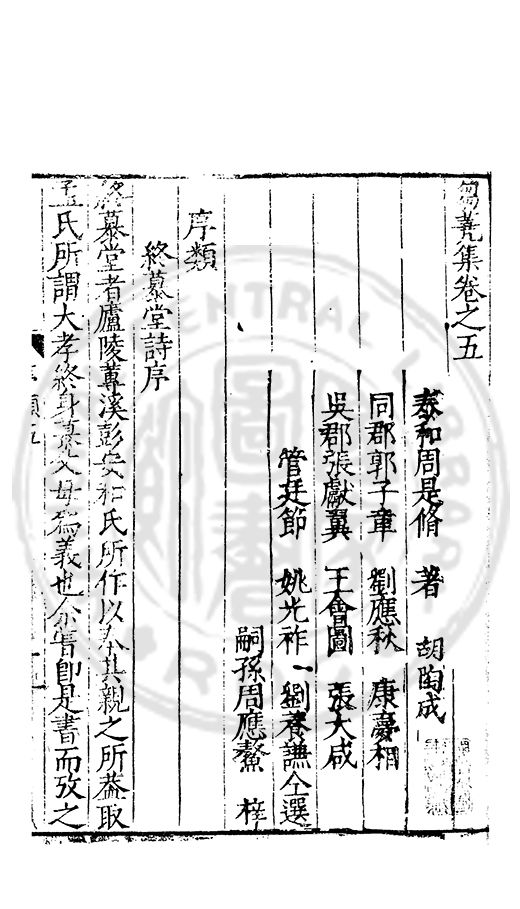 芻蕘集卷之五
泰和周是脩 著 胡陶成
同郡郭子章 劉應秋 康夢相
吳郡張獻翼 王會圖 張大咸
管廷節 姚光祚 劉養謙仝選
嗣孫周應鰲 梓
序類
終慕堂詩序
終慕堂者廬陵蓴溪彭安和氏所作以奉其親之所葢取
孟氏所謂大孝終身慕父母爲義也余嘗即是書而攷之
序類五
CENTRAL LIBRARY